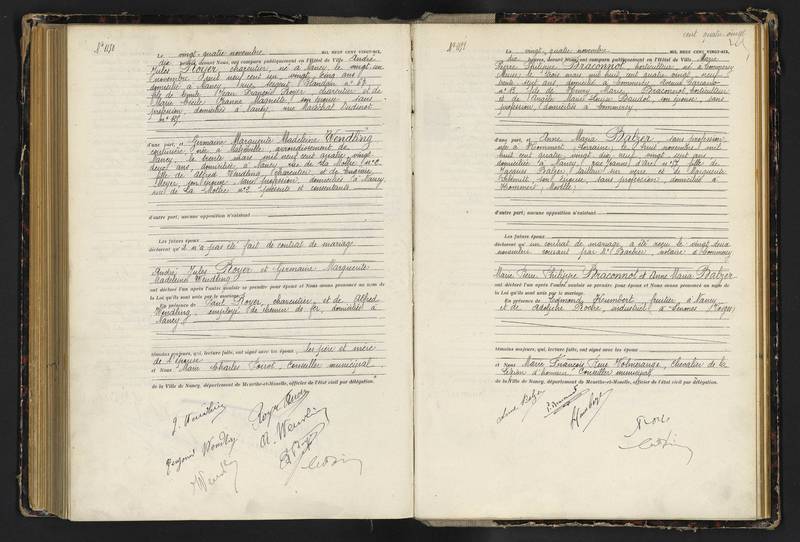 N° 1151
Le vingt-quatre novembre MIL NEUF CENT VINGT-SIX,
dix heures, devant Nous, ont comparu publiquement en l'Hôtel de Ville André
Jules Royer, charpentier, né à Nancy, le vingt un
novembre mil neuf cent un, vingt cinq ans,
domicilié à Nancy, rue Sergent Blandan n° 67
fils de Emile Jean François Royer charpentier et de
Marie son épouse, sans
profession, domiciliés à Nancy, rue Maréchal Oudinot
n° 67
d'une part, et Germaine Marguerite Madeleine Wendling
couturière née à arrondissement de
Nancy, le trente mars mil neuf cent quatre, vingt
deux ans, domiciliée à Nancy, rue de La Mothe n° 2
fille de Alfred Wendling, charpentier et de Eugénie
Meyer, son épouse, sans profession, domiciliés à Nancy,
rue de La Mothe n° 2 présents et consentants
d'autre part; aucune opposition n'existant
Les futurs époux
déclarent qu'il n'a pas été fait de contrat de mariage
André Jules Royer et Germaine Marguerite
Madeleine Wendling
ont déclaré l'un après l'autre vouloir se prendre pour époux et Nous avons prononcé au nom de
la Loi qu'ils sont unis par le mariage.
En présence de Paul Royer, charpentier, et de Alfred
Wendling, employé de chemin de fer, domiciliés à
Nancy
témoins majeurs, qui, lecture faite, ont signé avec les époux, les père et mère
de l'épouse
et Nous Marie Charles conseiller municipal
de la Ville de Nancy, département de Meurthe-et-Moselle, officier de l'état civil par délégation.
cent quatre vingt
Le vingt-quatre novembre MIL NEUF CENT VINGT-SIX,
dix heures, devant Nous, ont comparu publiquement en l'Hôtel de Ville Marie
Pierre Philippe Braconnot horticulteur, né à Commercy
Meuse le trois mars mil huit cent quatre vingt neuf
trente sept ans domicilié à Commercy avenue
n° 13 fils de Henry Marie Braconnot horticulteur
et de Angèle Marie Louise Baudot, son épouse, sans
profession, domiciliés à Commercy
d'une part, et Anne Maria Balzer, sans profession
née à Lorraine, le huit novembre mil
huit cent quatre vingt dix neuf, vingt sept ans,
domiciliée à Nancy, rue d'Arc n° 7 fille de
Jacques Balzer tailleur sur verre et de Marguerite
Schmitt, son épouse, sans profession, domiciliés à
Moselle
d'autre part; aucune opposition n'existant
Les futurs époux
déclarent qu'un contrat de mariage a été reçu le vingt deux
novembre courant par M° Barbier, notaire à Commercy
Marie Pierre Philippe Braconnot et Anne Maria Balzer
ont déclaré l'un après l'autre vouloir se prendre pour époux et Nous avons prononcé au nom de
la Loi qu'ils sont unis par le mariage.
En présence de Humbert, fruitier à Nancy
et de Adolphe industriel à Senones (Vosges)
témoins majeurs, qui, lecture faite, ont signé avec les époux
et Nous Marie François René Volmerange, Chevalier de la
Légion d'honneur Conseiller municipal
de la Ville de Nancy, département de Meurthe-et-Moselle, officier de l'état civil par délégation.